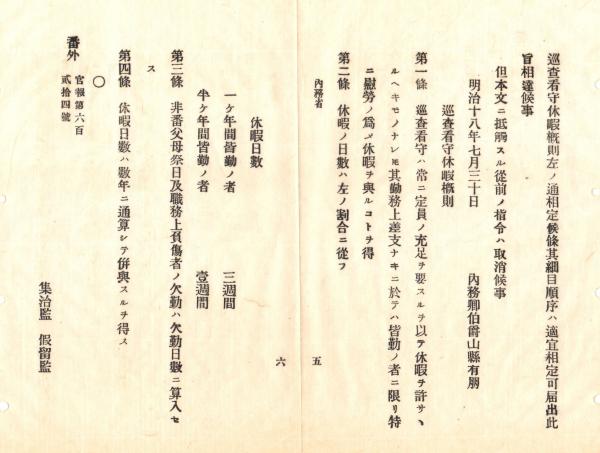 巡查看守休暇槪則左ノ通相定候條其細目順序ハ適宜相定可届出此
旨相達候事
但本文ニ抵觸スル從前ノ指令ハ取消候事
明治十八年七月三十日 內務卿伯爵山縣有朋
巡查看守休暇槪則
第一條 巡查看守ハ常ニ定員ノ充足ヲ要スルヲ以テ休暇ヲ許サヽ
ルヘキモノナレ𪜈其勤務上差支ナキニ於テハ皆勤ノ者ニ限リ特
ニ慰勞ノ爲メ休暇ヲ與ルコトヲ得
第二條 休暇ノ日數ハ左ノ割合ニ從フ
內務省
五
六
休暇日數
一ケ年間皆勤ノ者 三週間
半ケ年間皆勤ノ者 壹週間
第三條 非番父母祭日及職務上負傷者ノ欠勤ハ欠勤日數ニ算入セ
ス
第四條 休暇日數ハ數年ニ通算シテ併與スルヲ得ス
〇
番外 官報第六百貳拾四號
集治監 假留監